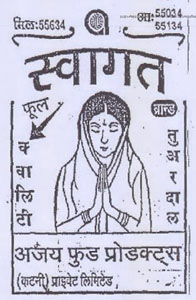 मिलः 55634
आ: 55034
55134
स्वागत
फूल
ब्रान्ड
क्वालिटी
तुअर दाल
अजय फुड प्रोडक्ट्स
(कटनी) प्राइवेट लिमिटेड